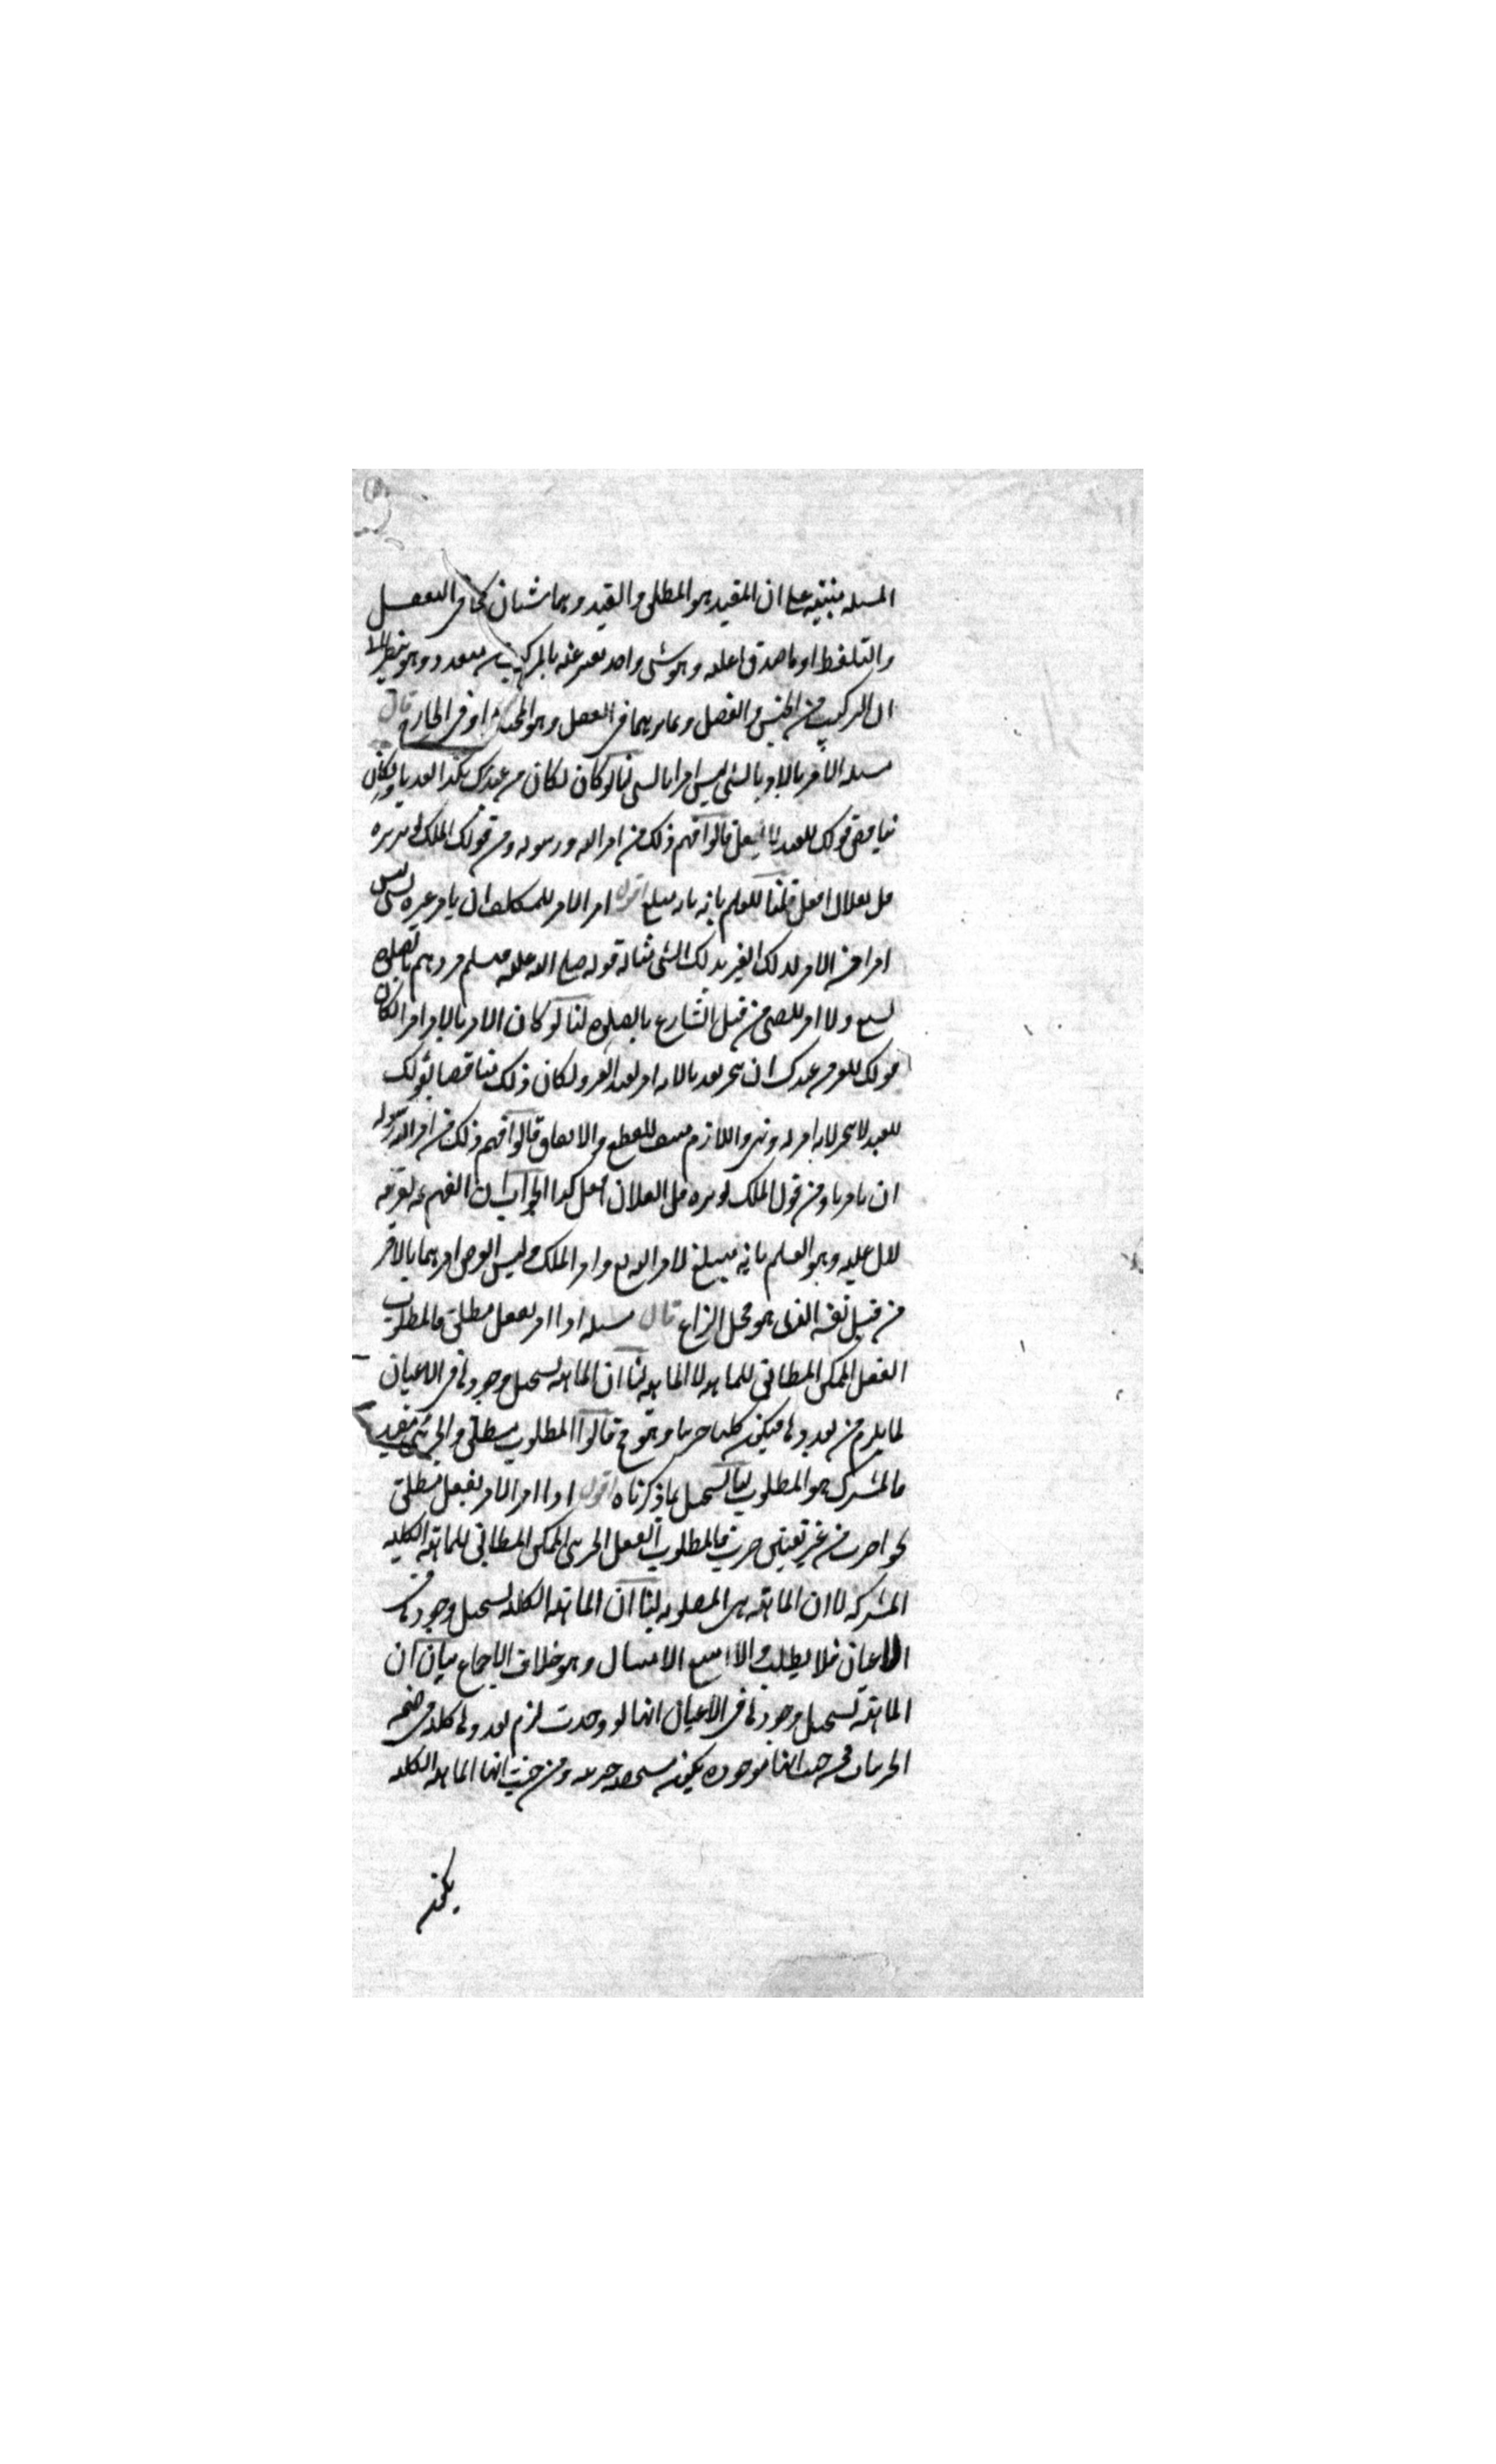 المسله مبنية على ان المقيد هو المطلق والقيد وهما شيئان كما في التعقل
والتلفظ او ما صدق عليه وهو شي واحد يعبر عنه بالمركب متعدد وهو
ان التركيب من الجنس والفصل وتمايزهما في العقل وهو الحق او في الخارج قال
مسله الامر بالامر بالشي ليس امرا بالشي لنا لو كان لكان مر عبدك بكذا تعديا ولكان
يناقض قولك للعبد لا تفعل قالوا فهم ذلك من امر الله ورسوله ومن قول الملك لوزيره
قل لفلان افعل قلنا للعلم بانه مبلغ اقول امر الامر للمكلف ان يامر غيره بشي ليس
امرا من الامر لذلك الغير بذلك الشي مثاله قوله صلى الله عليه وسلم مروهم بالصلوه
لسبع ولا امر للصبي من قبل الشارع بالصلوه لنا لو كان الامر بالامر امرا لكان
قولك للغير مر عبدك ان يتجر تعديا لانه امر لعبد الغير ولكان ذلك مناقضا لقولك
للعبد لا تتجر لانه امر له ونهي واللازم منتف للقطع والاتفاق قالوا فهم ذلك من امر الله ورسوله
ان يامرنا ومن قول الملك لوزيره قل لفلان افعل كذا الجواب ان الفهم ثمه لقرينه
تدل عليه وهو العلم بانه مبلغ لامر الله تع وامر الملك وليس الغرض امرهما بالامر
من قبل نفسه الذي هو محل النزاع قال مسله اذا امر بفعل مطلق فالمطلوب
الفعل الممكن المطابق للماهيه لا الماهيه لنا ان الماهيه يستحيل وجودها في الاعيان
لما يلزم من تعددها فيكون كليا جزيا وهو مح قالوا المطلوب مطلق والجزئي مقيد
فالمشترك هو المطلوب قلنا يستحيل بما ذكرناه اقول اذا امر الامر بفعل مطلق
نحو اضرب من غير تعيين ضرب فالمطلوب الفعل الجزئي الممكن المطابق للماهيه الكليه
المشتركه لا ان الماهيه هي المطلوبه لنا ان الماهيه الكليه يستحيل وجودها في
الاعيان فلا يطلب والا امتنع الامتثال وهو خلاف الاجماع بيان ان
الماهيه يستحيل وجودها في الاعيان انها لو وجدت لزم تعددها كليه في ضمن
الجزيات فمن حيث انها موجوده يكون مشخصه جزيه ومن حيث انها الماهيه الكليه
يكون